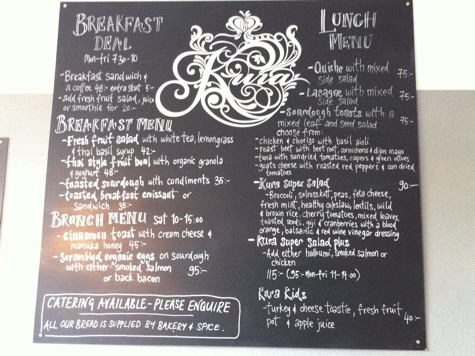 BREAKFAST
DEAL
Mon-fri 7.30-10
- Breakfast sandwich &
a coffee 48:- extra shot 5:-
- add fresh fruit salad, juice
or smoothie for 20:-
BREAKFAST MENU
- Fresh fruit salad with white tea, lemongrass
& thai basil syrup 42:-
- thai style fruit bowl with organic granola
& yoghurt 48:-
- toasted sourdough with condiments 35:-
- toasted breakfast croissant or
sandwich 35:-
BRUNCH MENU SAT 10-15:00
- cinnamon toast with cream cheese &
manuka honey 45:-
- Scrambled organic eggs on sourdough
with either smoked salmon 95:-
or back bacon
CATERING AVAILABLE - PLEASE ENQUIRE
ALL OUR BREAD IS SUPPLIED BY BAKERY & SPICE.
Kura
LUNCH
MENU
- Quiche with mixed
side salad 75:-
- Lasagne with mixed
side salad 75:-
- Sourdough toasts with a
mixed leaf and seed salad 75:-
choose from:
- chicken & chorizo with basil aioli
- roast beef with beet relish, cornichons & dijon mayo
- tuna with sundried tomatoes, capers & green olives
- goats cheese with roasted red peppers & sun dried
tomatoes
- Kura Super Salad 90:-
- Broccoli, peas, feta cheese,
fresh mint, healthy coleslaw, lentils, wild
& brown rice, cherry tomatoes, mixed leaves,
toasted seeds, goji & cranberries with a blood
orange, balsamic & red wine vinegar dressing
- Kura Super Salad plus
- Add either halloumi, smoked salmon or
chicken
115:- (95:- Mon-Fri 11-14:00)
Kura Kids
- turkey & cheese toastie, fresh fruit
pot & apple juice 40:-